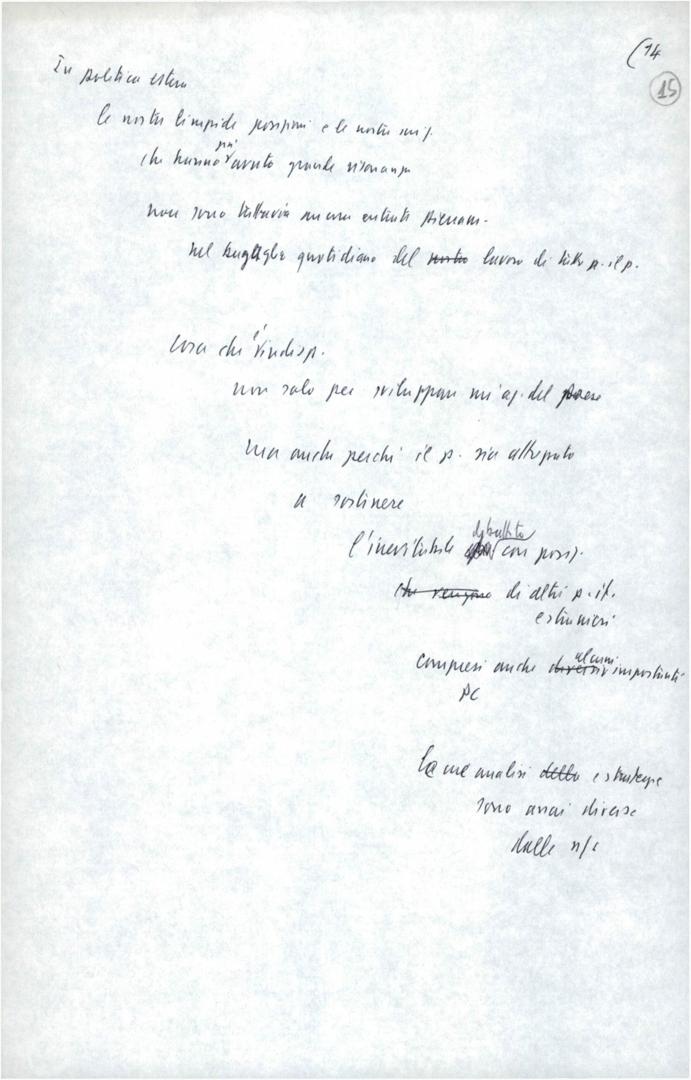 (14
15
In politica estera
le nostre limpide posizioni e le nostre iniz.
che hanno più avuto grande risonanza
non sono tuttavia ancora entrate pienam.
nel bagaglio quotidiano del nostro lavoro di tutto p. il p.
Cosa che è indisp.
non solo per sviluppare un'az. del paese
ma anche perché il p. sia attrezzato
a sostenere
l'inevitabile dibattito con posiz.
che vengono di altri p. it.
estranieri
compresi anche diversi alcuni importanti
PC
le cui analisi delle e strategie
sono assai diverse
dalle n/e